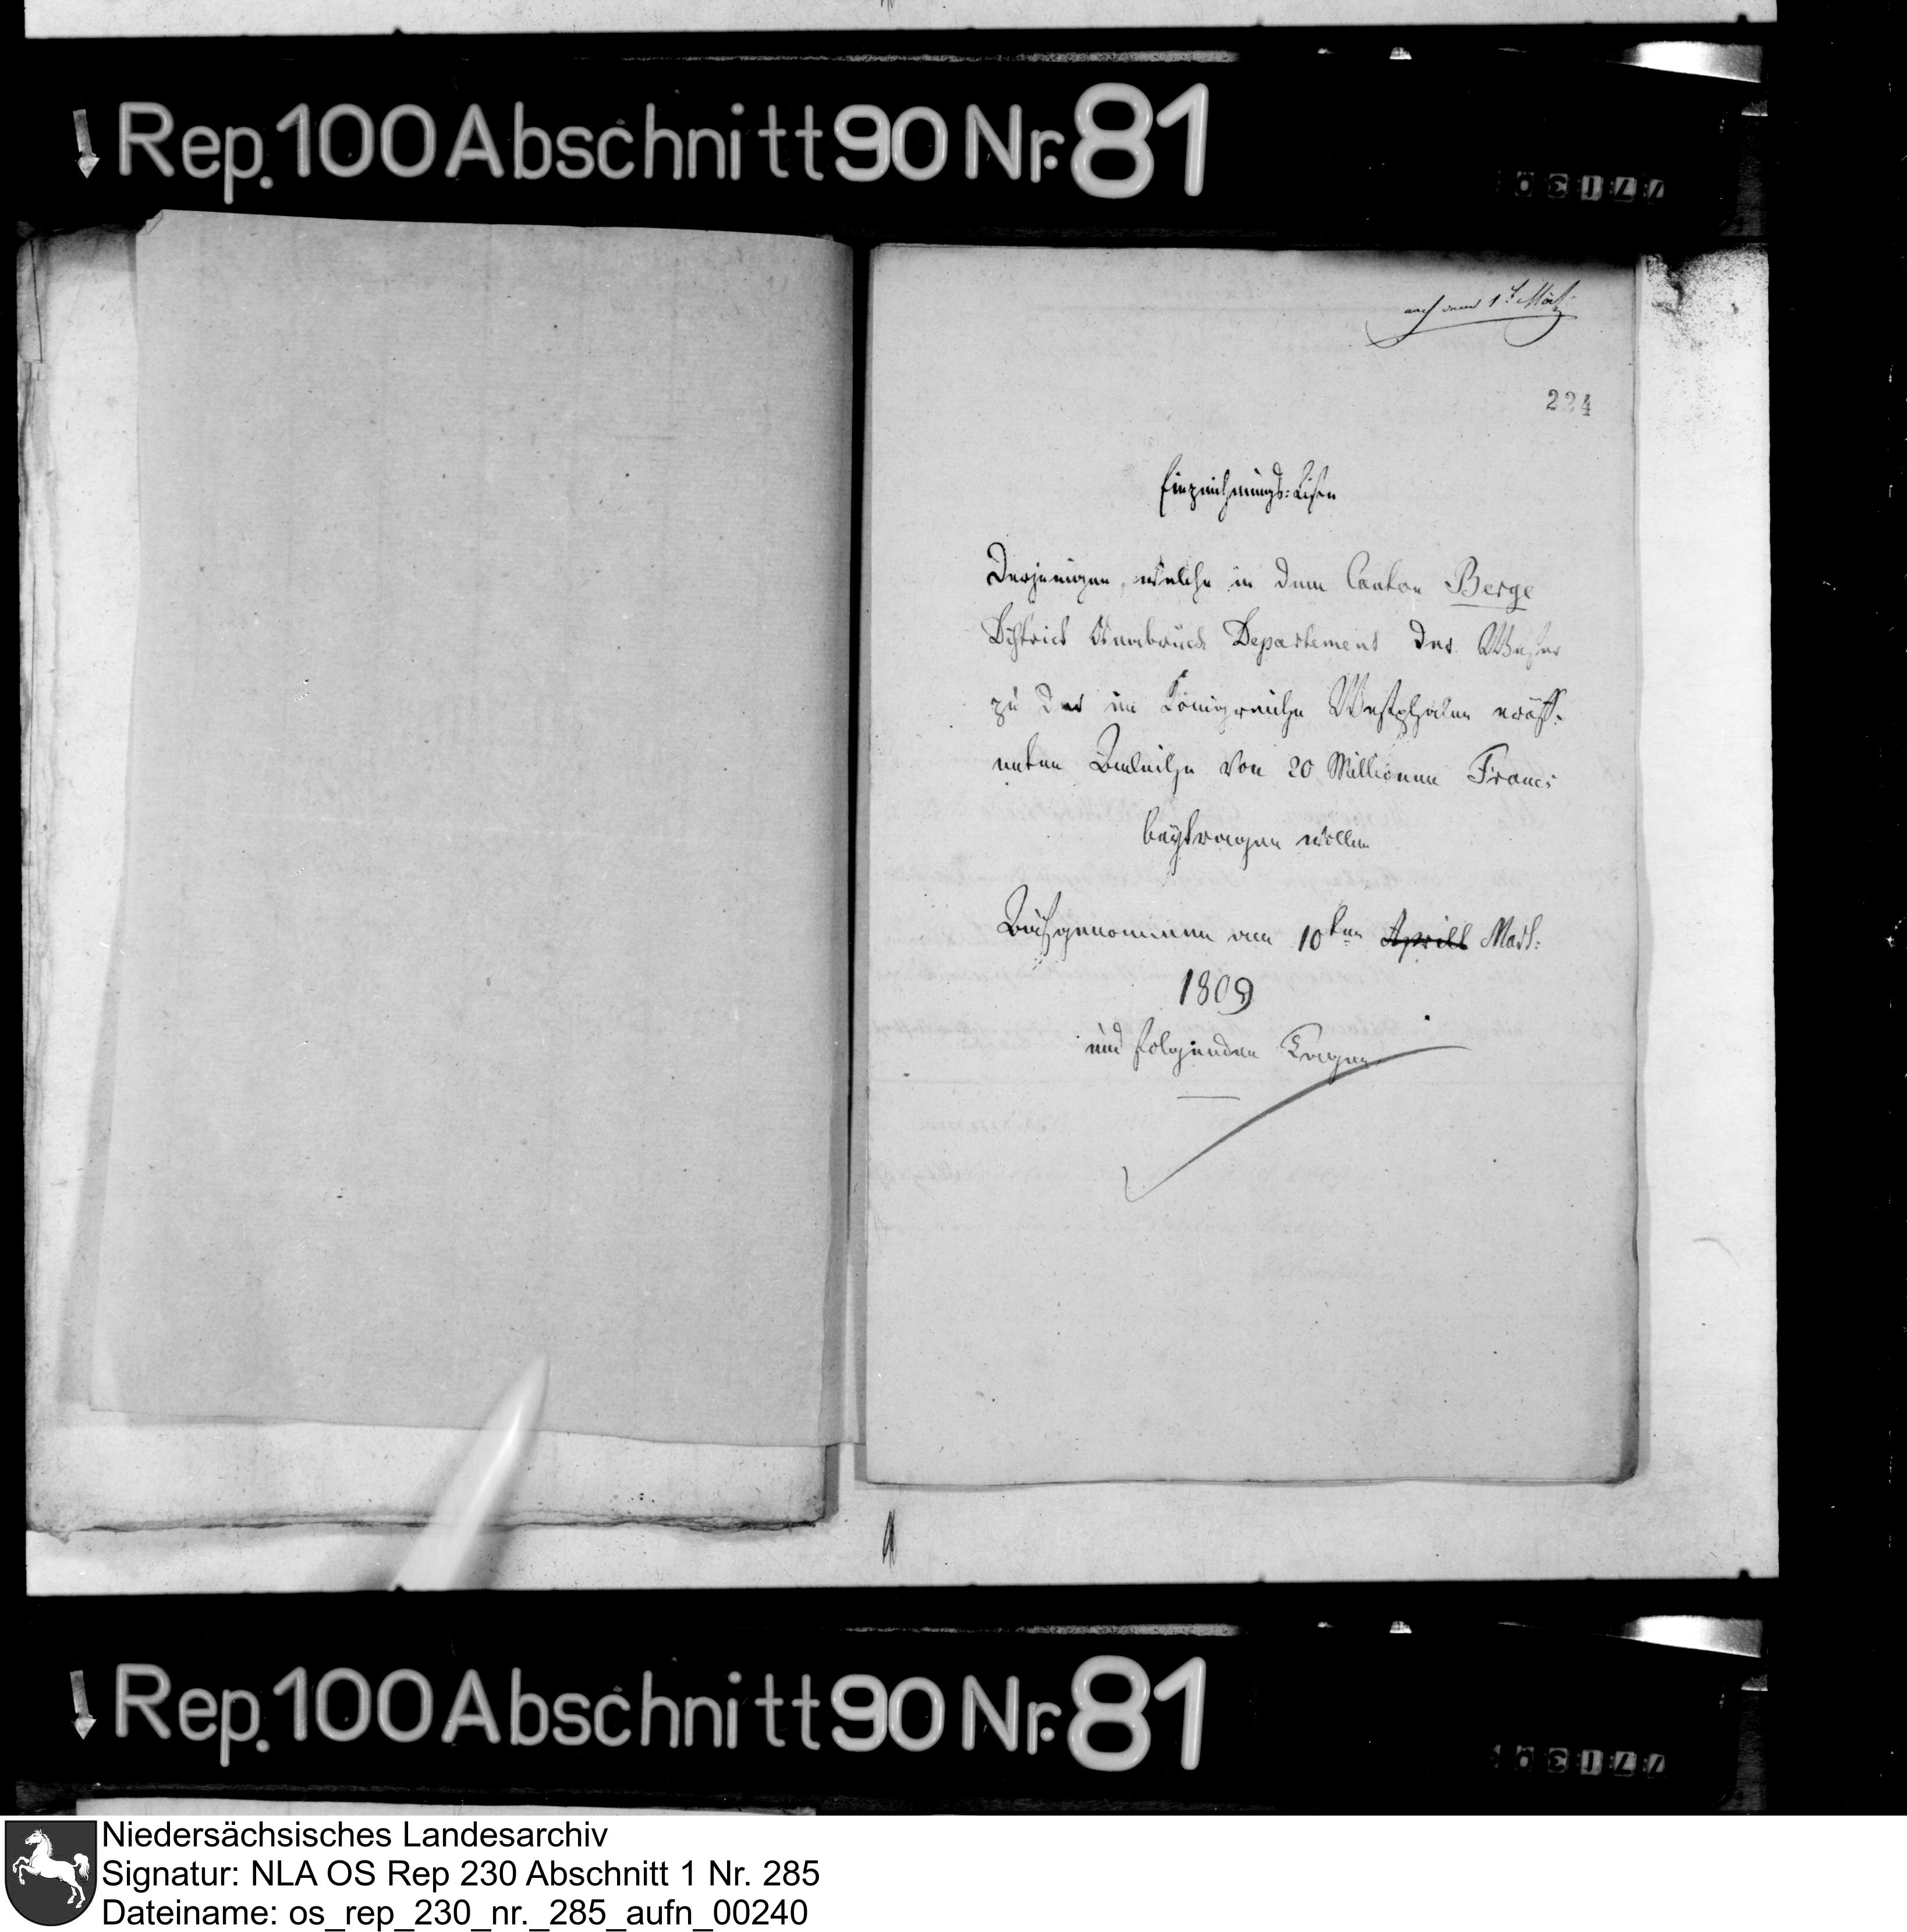 Rep. 100 Abschnitt 90 Nr. 81
224
Einzeichnungs-Listen
Derjenigen, welche in dem Canton Berge
District Osnabrück Departement der Weser
zu der im Königreiche Westphalen eröff-
neten Anleihe von 20 Millionen Francs
beytragen wollen
Aufgenommen am 10ten Aprill Mart:
1809
und folgenden Tagen
Rep. 100 Abschnitt 90 Nr. 81
Niedersächsisches Landesarchiv
Signatur: NLA OS Rep 230 Abschnitt 1 Nr. 285
Dateiname: os_rep_230_nr._285_aufn_00240